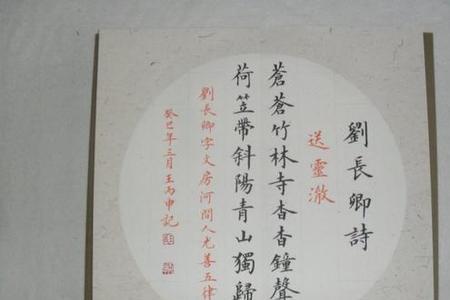 劉長卿詩
送靈澈
蒼蒼竹林寺杳杳鐘聲
荷笠帶斜陽青山獨歸
劉長卿字文房河間人尤善五律
癸巳年三月王丙申記